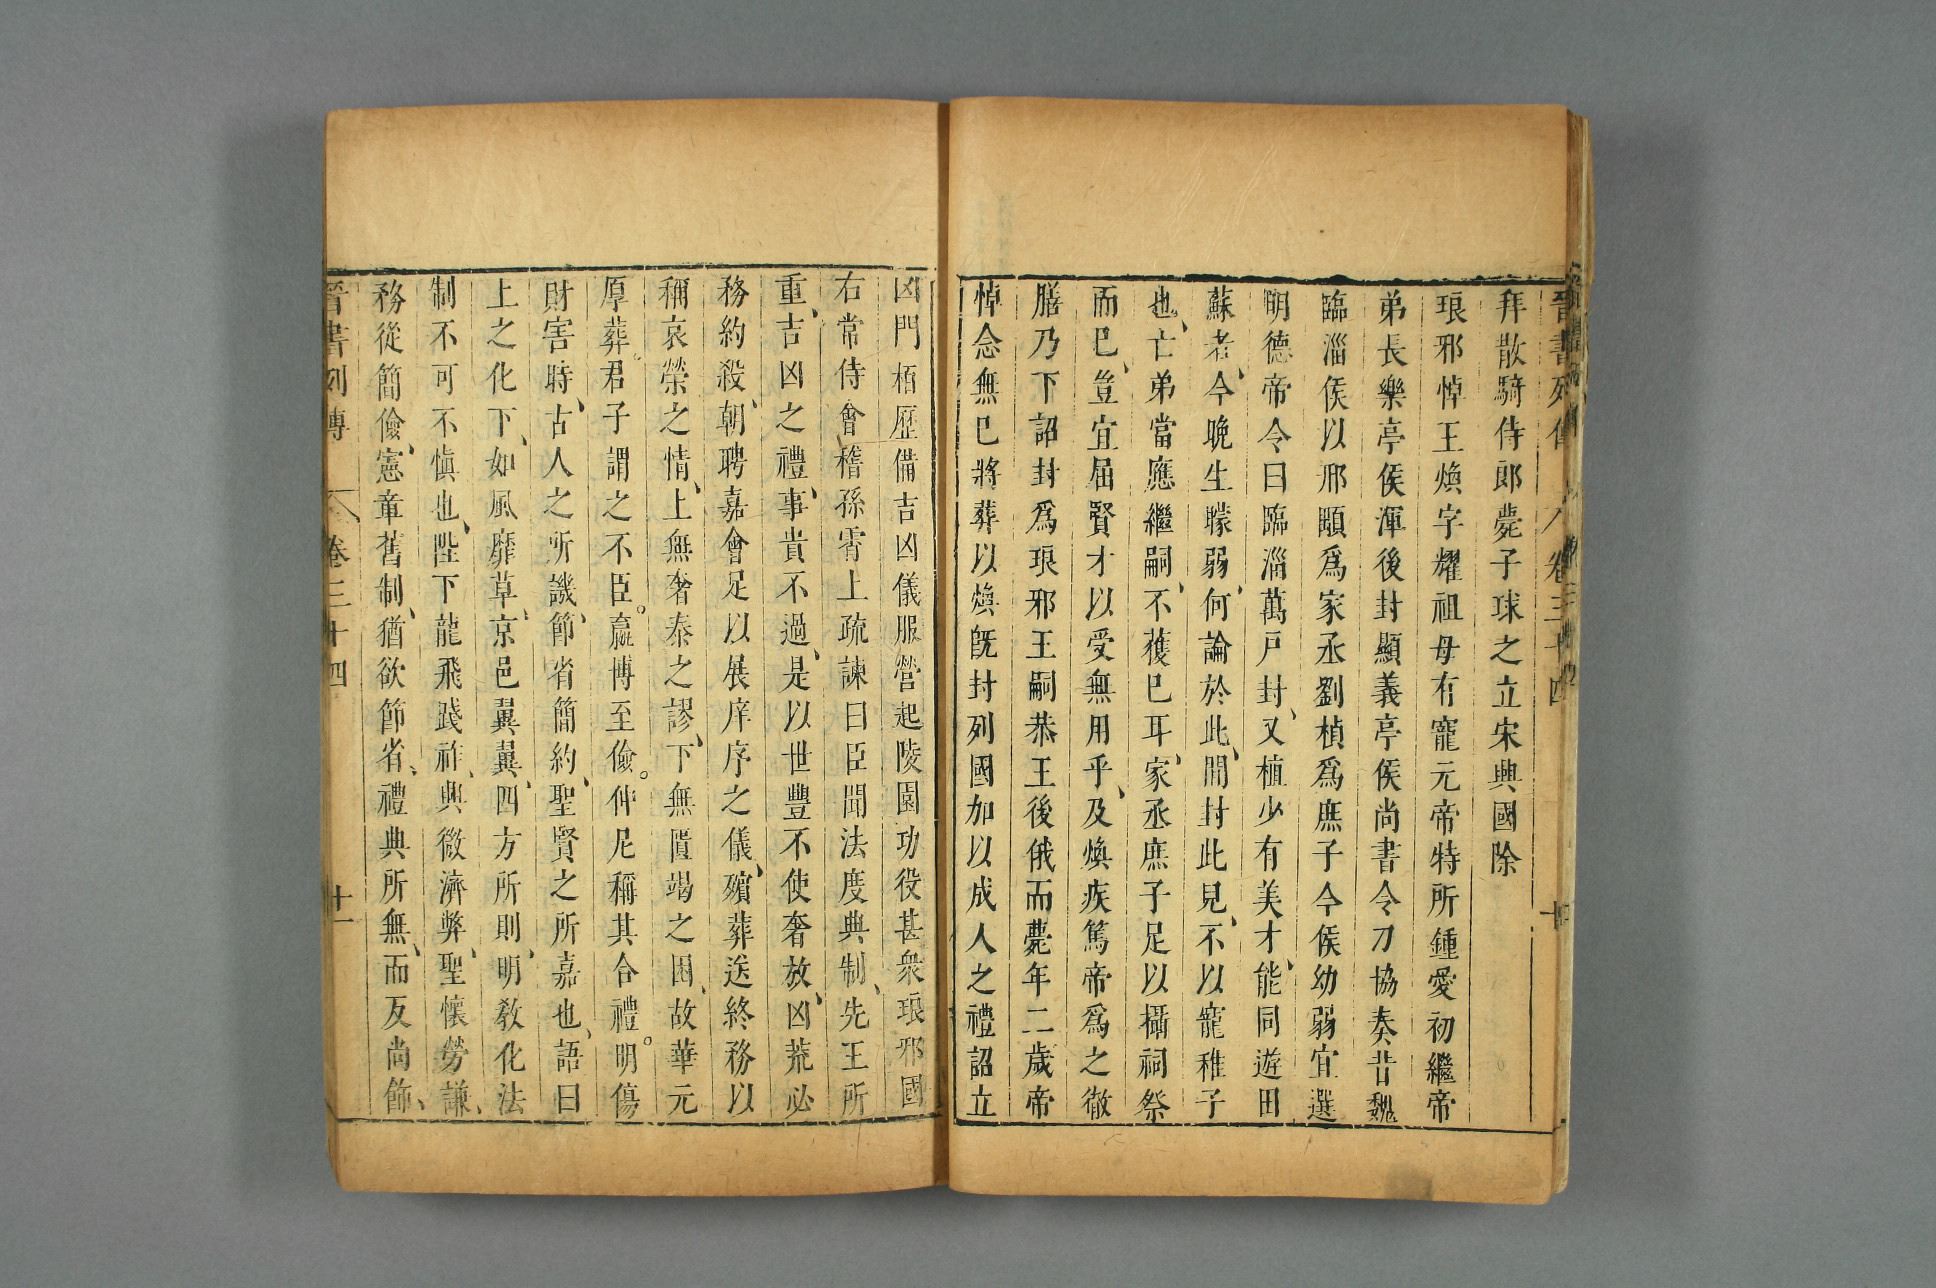 晉書列傳 卷三十四 十
拜散騎侍郎薨子球之立宋典國除
琅邪悼王煥字耀祖母有寵元帝特所鍾愛初繼帝
弟長樂亭侯渾後封顯義亭侯尚書令刁協奏昔魏
臨淄侯以邢顒爲家丞劉楨爲庶子今侯幼弱宜選
明德帝令曰臨淄萬戶封、又植少有美才、能同遊田
蘇者、今晚生矇弱、何論於此、間封此見、不以寵稚子
也、亡弟當應繼嗣、不獲已耳、家丞庶子足以攝祠祭
而已、豈宜屈賢才以受無用乎、及煥疾篤帝爲之徹
膳乃下詔封爲琅邪王嗣恭王後俄而薨年二歲帝
悼念無已將葬以煥旣封列國加以成人之禮詔立
凶門栢歷備吉凶儀服營起陵園功役甚衆琅邪國
右常侍會稽孫霄上疏諫曰臣聞法度典制、先王所
重、吉凶之禮、事貴不過、是以世豐不使奢放、凶荒必
務約殺、朝聘嘉會足以展庠序之儀、殯葬送終務以
稱哀榮之情、上無奢泰之謬、下無匱竭之困、故華元
厚葬。君子謂之不臣。嬴博至儉。仲尼稱其合禮。明傷
財害時、古人之所譏、節省簡約、聖賢之所嘉也、語曰
上之化下、如風靡草、京邑翼翼、四方所則、明教化法
制不可不愼也、陛下龍飛踐祚、興微濟弊、聖懷勞謙、
務從簡儉、憲章舊制、猶欲節省、禮典所無、而反尚飾、
晉書列傳 卷三十四 十一